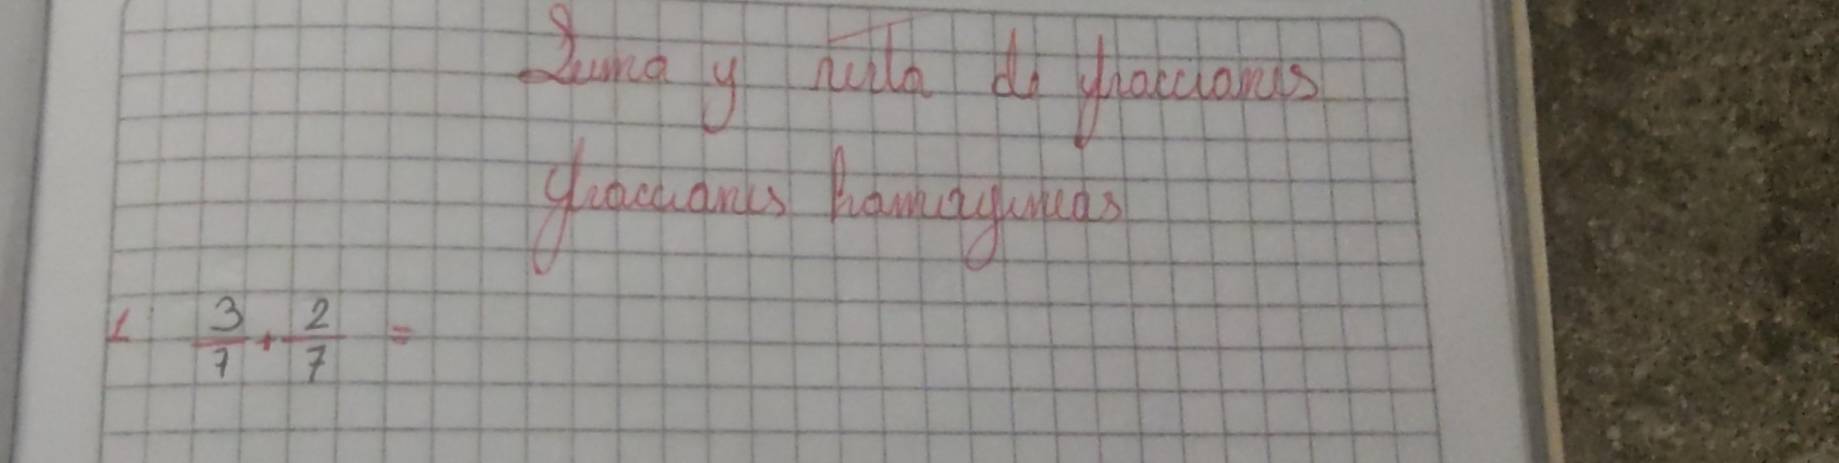 Suma y resta de fracciones
fracciones homogeneas
1 3/7 + 2/7 =